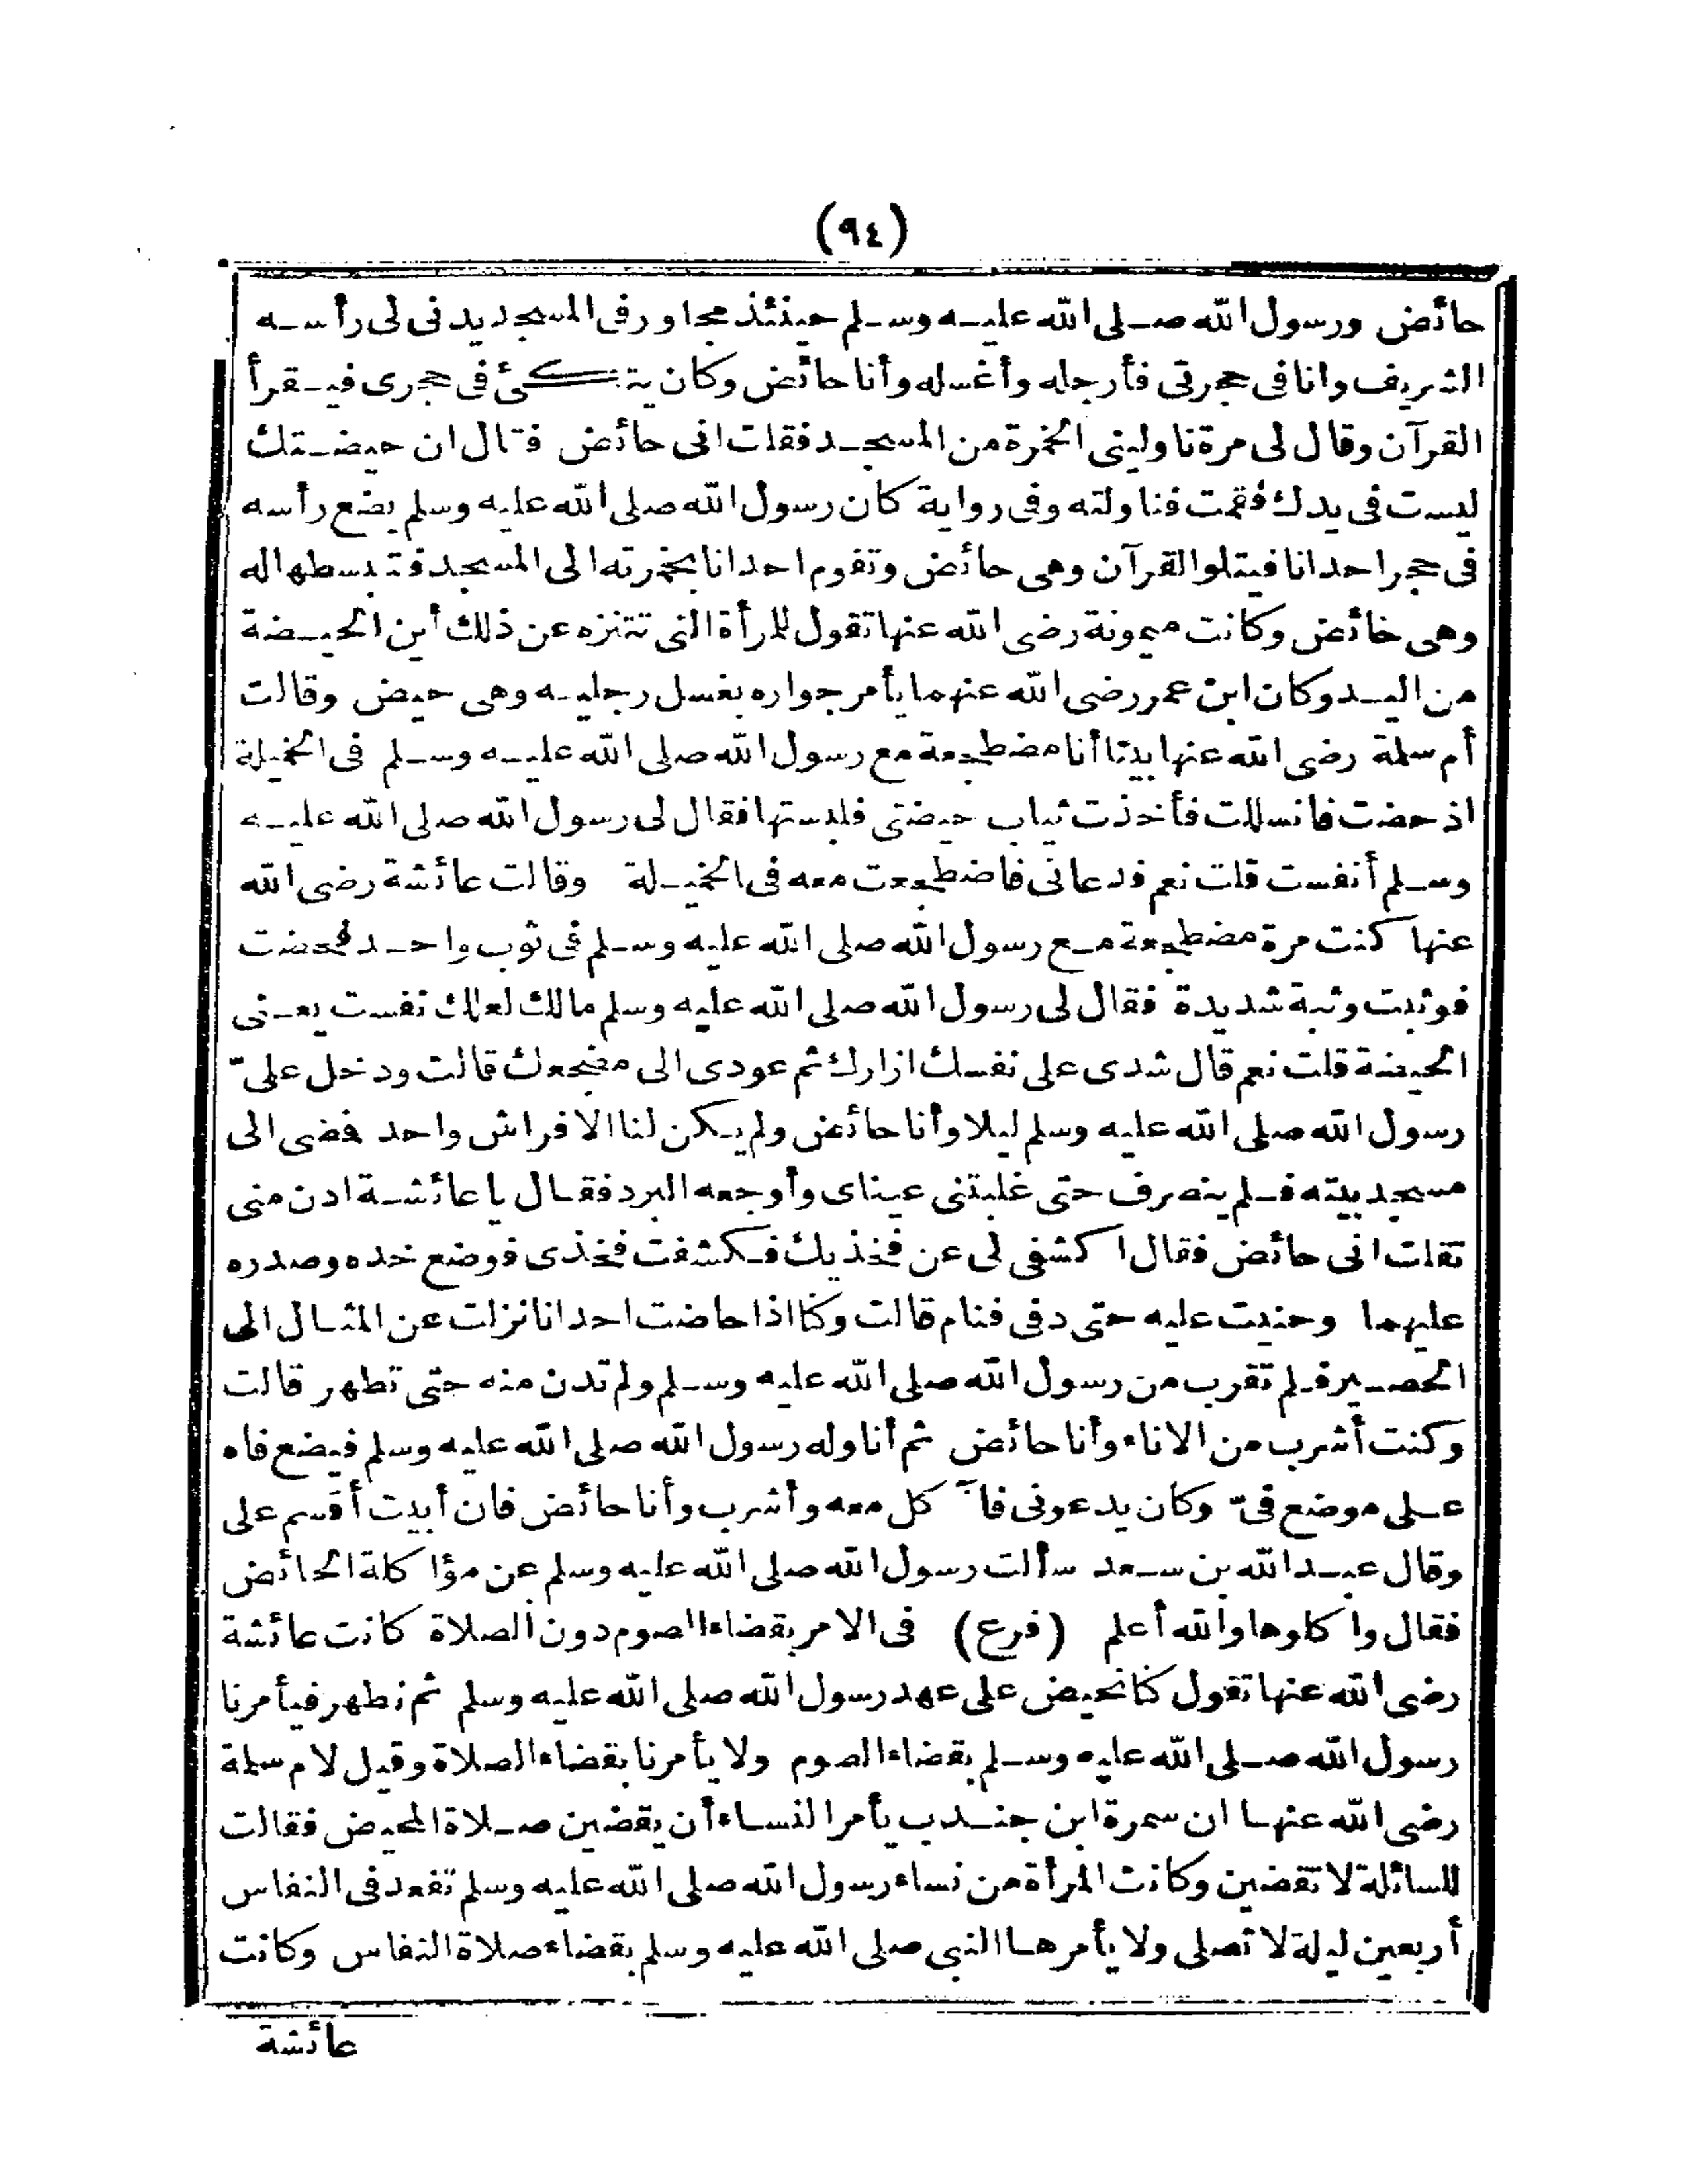 (٩٤)
حائض ورسول الله صلى الله عليه وسلم حينئذ مجاور فى المسجد يدنى لى رأسه
الشريف وانا فى حجرتى فأرجله وأغسله وأنا حائض وكان يتكئ فى حجرى فيقرأ
القرآن وقال لى مرة ناولينى الخمرة من المسجد فقلت انى حائض فقال ان حيضتك
ليست فى يدك فقمت فناولته وفى رواية كان رسول الله صلى الله عليه وسلم يضع رأسه
فى حجر احدانا فيتلو القرآن وهى حائض وتقوم احدانا بخمرته الى المسجد فتبسطها له
وهى حائض وكانت ميمونة رضى الله عنها تقول للمرأة التى تتنزه عن ذلك أين الحيضة
من اليد وكان ابن عمر رضى الله عنهما يأمر جواره بغسل رجليه وهى حيض وقالت
أم سلمة رضى الله عنها بينا أنا مضطجعة مع رسول الله صلى الله عليه وسلم فى الخميلة
اذ حضت فانسللت فأخذت ثياب حيضتى فلبستها فقال لى رسول الله صلى الله عليه
وسلم أنفست قلت نعم فدعانى فاضطجعت معه فى الخميلة وقالت عائشة رضى الله
عنها كنت مرة مضطجعة مع رسول الله صلى الله عليه وسلم فى ثوب واحد فحضت
فوثبت وثبة شديدة فقال لى رسول الله صلى الله عليه وسلم مالك لعلك نفست يعنى
الحيضة قلت نعم قال شدى على نفسك ازارك ثم عودى الى مضجعك قالت ودخل علىّ
رسول الله صلى الله عليه وسلم ليلا وأنا حائض ولم يكن لنا الا فراش واحد فمضى الى
مسجد بيته فلم ينصرف حتى غلبتنى عيناى وأوجعه البرد فقال يا عائشة ادن منى
فقلت انى حائض فقال اكشفى لى عن فخذيك فكشفت فخذى فوضع خده وصدره
عليهما وحنيت عليه حتى دفى فنام قالت وكنا اذا حاضت احدانا نزلت عن المثال الى
الحصير فلم تقرب من رسول الله صلى الله عليه وسلم ولم تدن منه حتى تطهر قالت
وكنت أشرب من الاناء وأنا حائض ثم أناوله رسول الله صلى الله عليه وسلم فيضع فاه
على موضع فىّ وكان يدعونى فآكل معه وأشرب وأنا حائض فان أبيت أقسم على
وقال عبد الله بن سعد سألت رسول الله صلى الله عليه وسلم عن مؤاكلة الحائض
فقال واكلوها والله أعلم (فرع) فى الامر بقضاء الصوم دون الصلاة كانت عائشة
رضى الله عنها تقول كنا نحيض على عهد رسول الله صلى الله عليه وسلم ثم نطهر فيأمرنا
رسول الله صلى الله عليه وسلم بقضاء الصوم ولا يأمرنا بقضاء الصلاة وقيل لام سلمة
رضى الله عنها ان سمرة ابن جندب يأمر النساء أن يقضين صلاة المحيض فقالت
للسائلة لا تقضين وكانت المرأة من نساء رسول الله صلى الله عليه وسلم تقعد فى النفاس
أربعين ليلة لا تصلى ولا يأمرها النبي صلى الله عليه وسلم بقضاء صلاة النفاس وكانت
عائشة